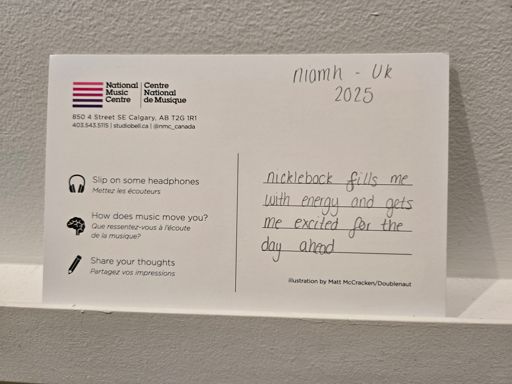 niamh - UK
2025
National Music Centre
Centre National de Musique
850 4 Street SE Calgary, AB T2G 1R1
403.543.5115 | studiobell.ca | @nmc_canada
Slip on some headphones
Mettez les écouteurs
How does music move you?
Que ressentez-vous à l'écoute
de la musique?
Share your thoughts
Partagez vos impressions
nickleback fills me
with energy and gets
me excited for the
day ahead
Illustration by Matt McCracken/Doublenaut